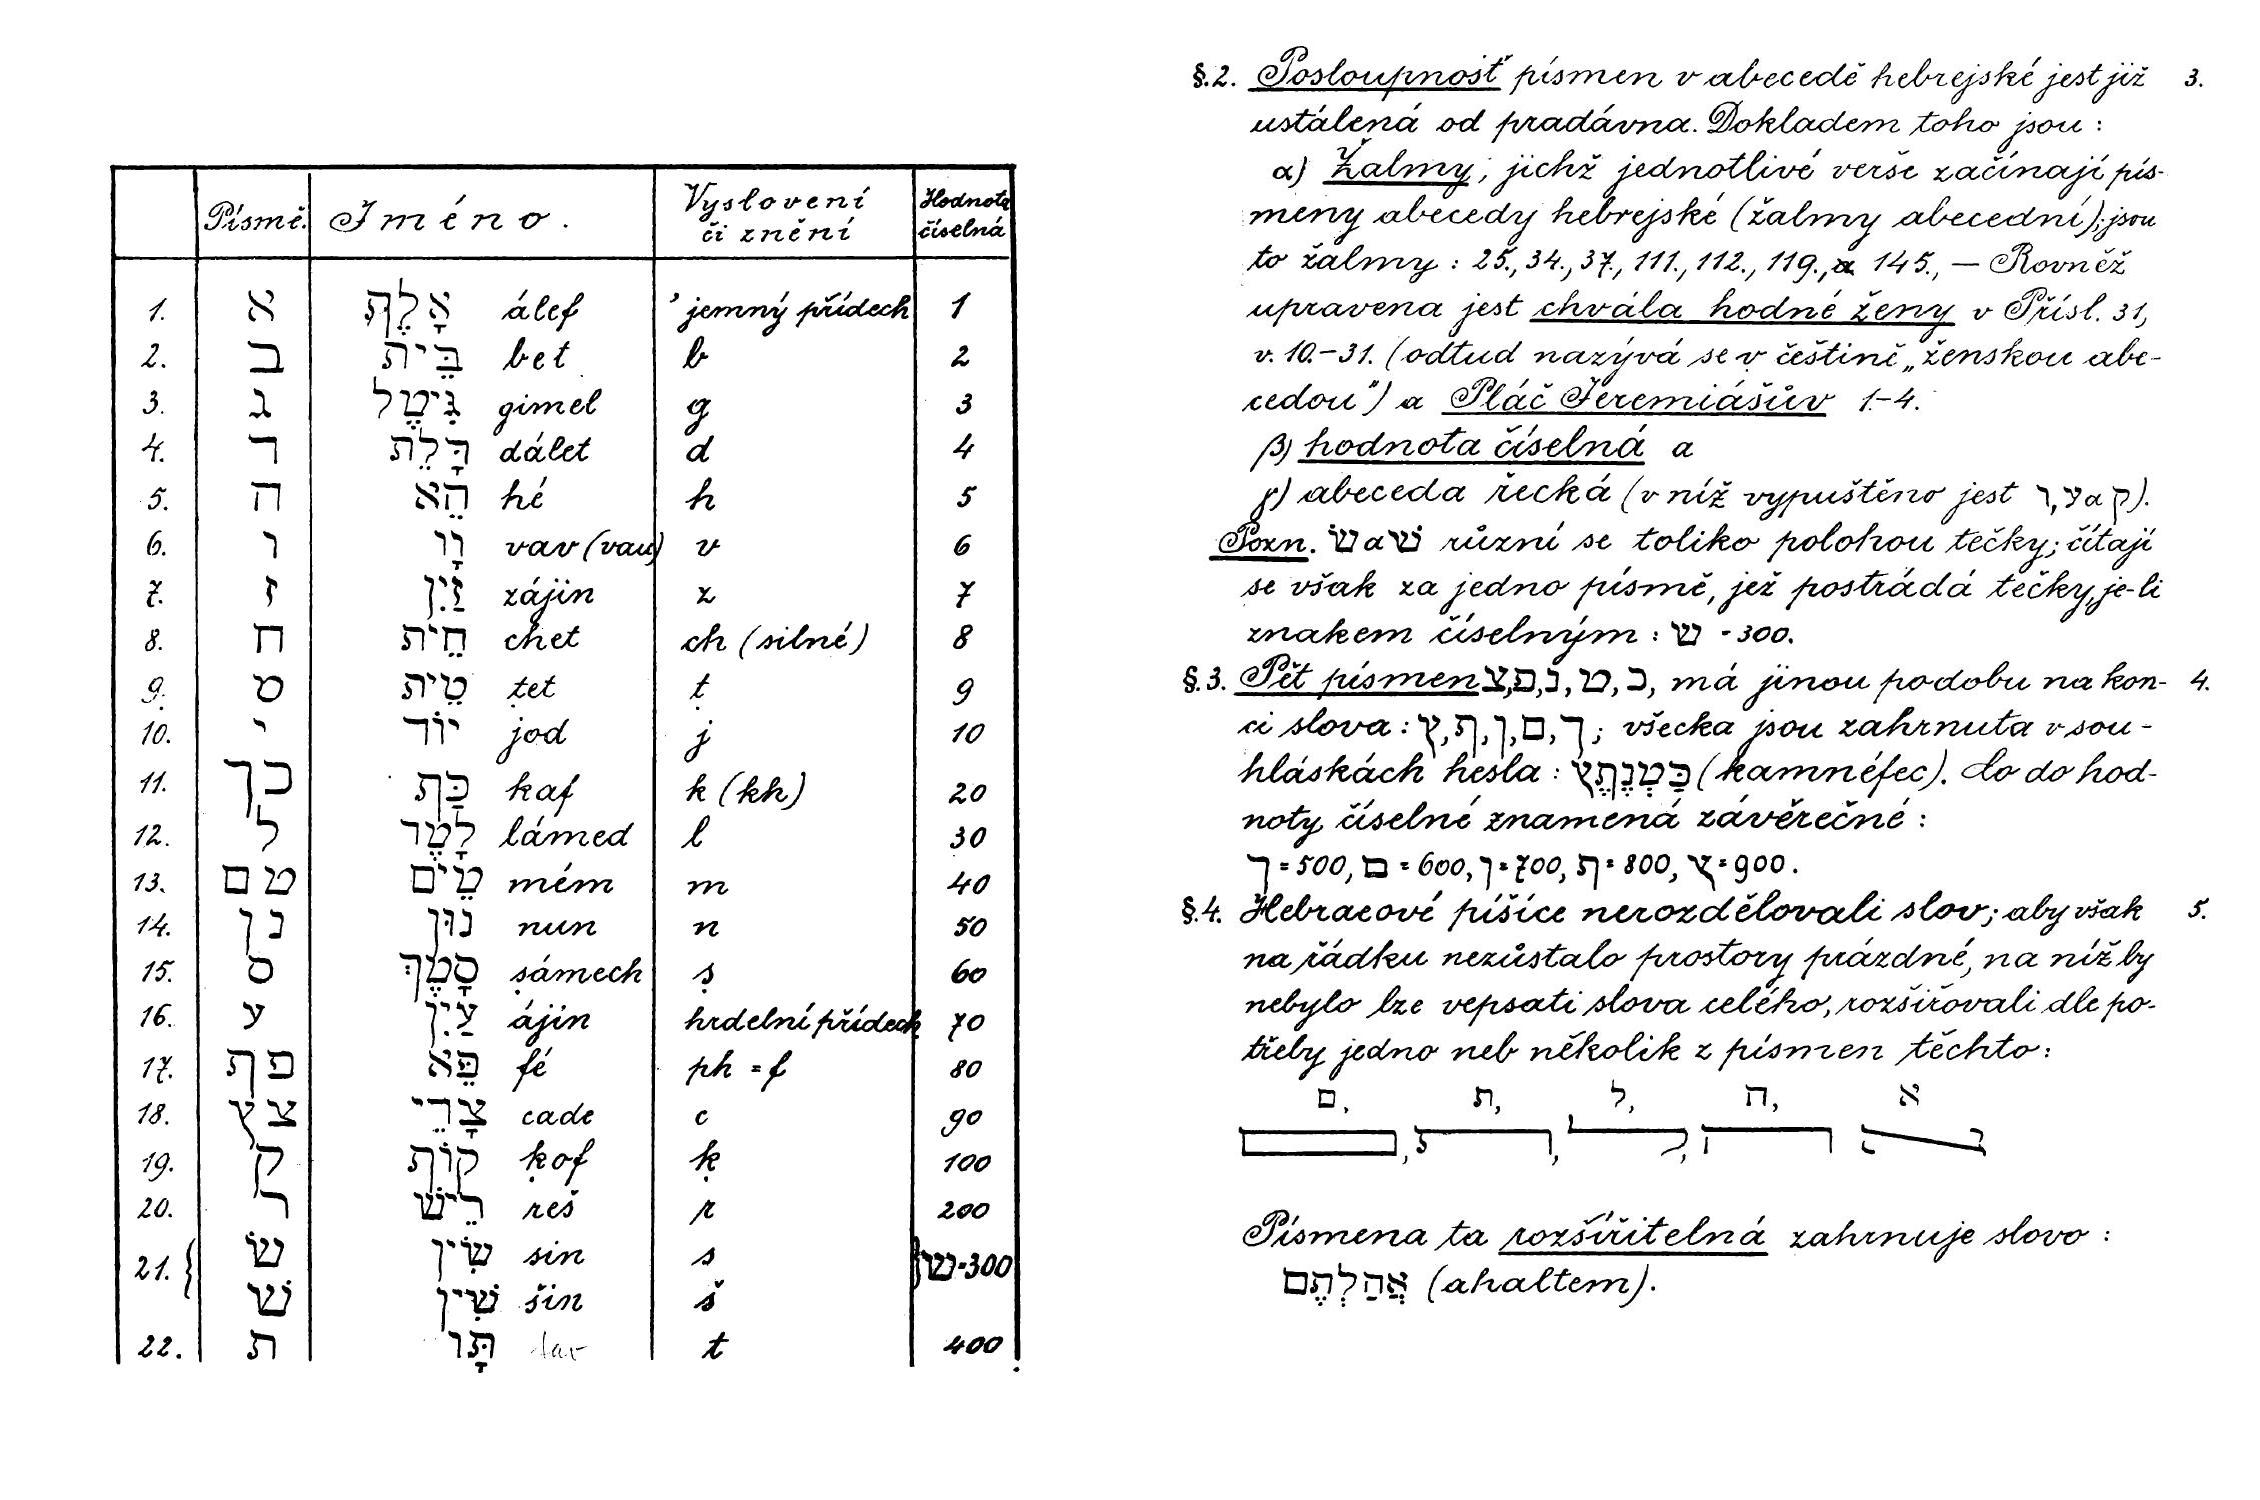 Písmě. Jméno. Vyslovení či znění Hodnota číselná
1. א אָלֶף álef ʼ jemný přídech 1
2. ב בֵּית bet b 2
3. ג גִּימֶל gimel g 3
4. ד דָּלֵת dálet d 4
5. ה הֵא hé h 5
6. ו וָו vav (vau) v 6
7. ז זַיִן zájin z 7
8. ח חֵית chet ch (silné) 8
9. ט טֵית ṭet ṭ 9
10. י יוֹד jod j 10
11. כ ך כַּף kaf k (kh) 20
12. ל לָמֶד lámed l 30
13. מ ם מֵים mém m 40
14. נ ן נוּן nun n 50
15. ס סָמֶךְ ṣámech ṣ 60
16. ע עַיִן ájin hrdelní přídech 70
17. פ ף פֵּא fé ph = f 80
18. צ ץ צָדֵי cade c 90
19. ק קוֹף ḳof ḳ 100
20. ר רֵישׁ reš r 200
21. שׂ שִׂין sin s ש=300
שׁ שִׁין šin š
22. ת תָּו tav t 400
§.2. Posloupnosť písmen v abecedě hebrejské jest již 3.
ustálená od pradávna. Dokladem toho jsou :
α) Žalmy, jichž jednotlivé verše začínají pís-
meny abecedy hebrejské (žalmy abecední); jsou
to žalmy : 25., 34., 37., 111., 112., 119., a 145., — Rovněž
upravena jest chvála hodné ženy v Přísl. 31,
v. 10.–31. (odtud nazývá se v češtině „ženskou abe-
cedou“) a Pláč Jeremiášův 1.–4.
β) hodnota číselná a
γ) abeceda řecká (v níž vypuštěno jest ו, צ a ק).
Pozn. שׂ a שׁ různí se toliko polohou tečky; čítají
se však za jedno písmě, jež postrádá tečky, je-li
znakem číselným : ש = 300.
§.3. Pět písmen כ, מ, נ, פ, צ, má jinou podobu na kon- 4.
ci slova : ך, ם, ן, ף, ץ; všecka jsou zahrnuta v sou-
hláskách hesla : כַּמְנֶפֶץ (kamnéfec). Co do hod-
noty číselné znamená závěrečné :
ך = 500, ם = 600, ן = 700, ף = 800, ץ = 900.
§.4. Hebraeové píšíce nerozdělovali slov; aby však 5.
na řádku nezůstalo prostory prázdné, na níž by
nebylo lze vepsati slova celého, rozšiřovali dle po-
třeby jedno neb několik z písmen těchto :
א ה, ל, ת, ם,
Písmena ta rozšířitelná zahrnuje slovo :
אֲהַלְתֶּם (ahaltem).